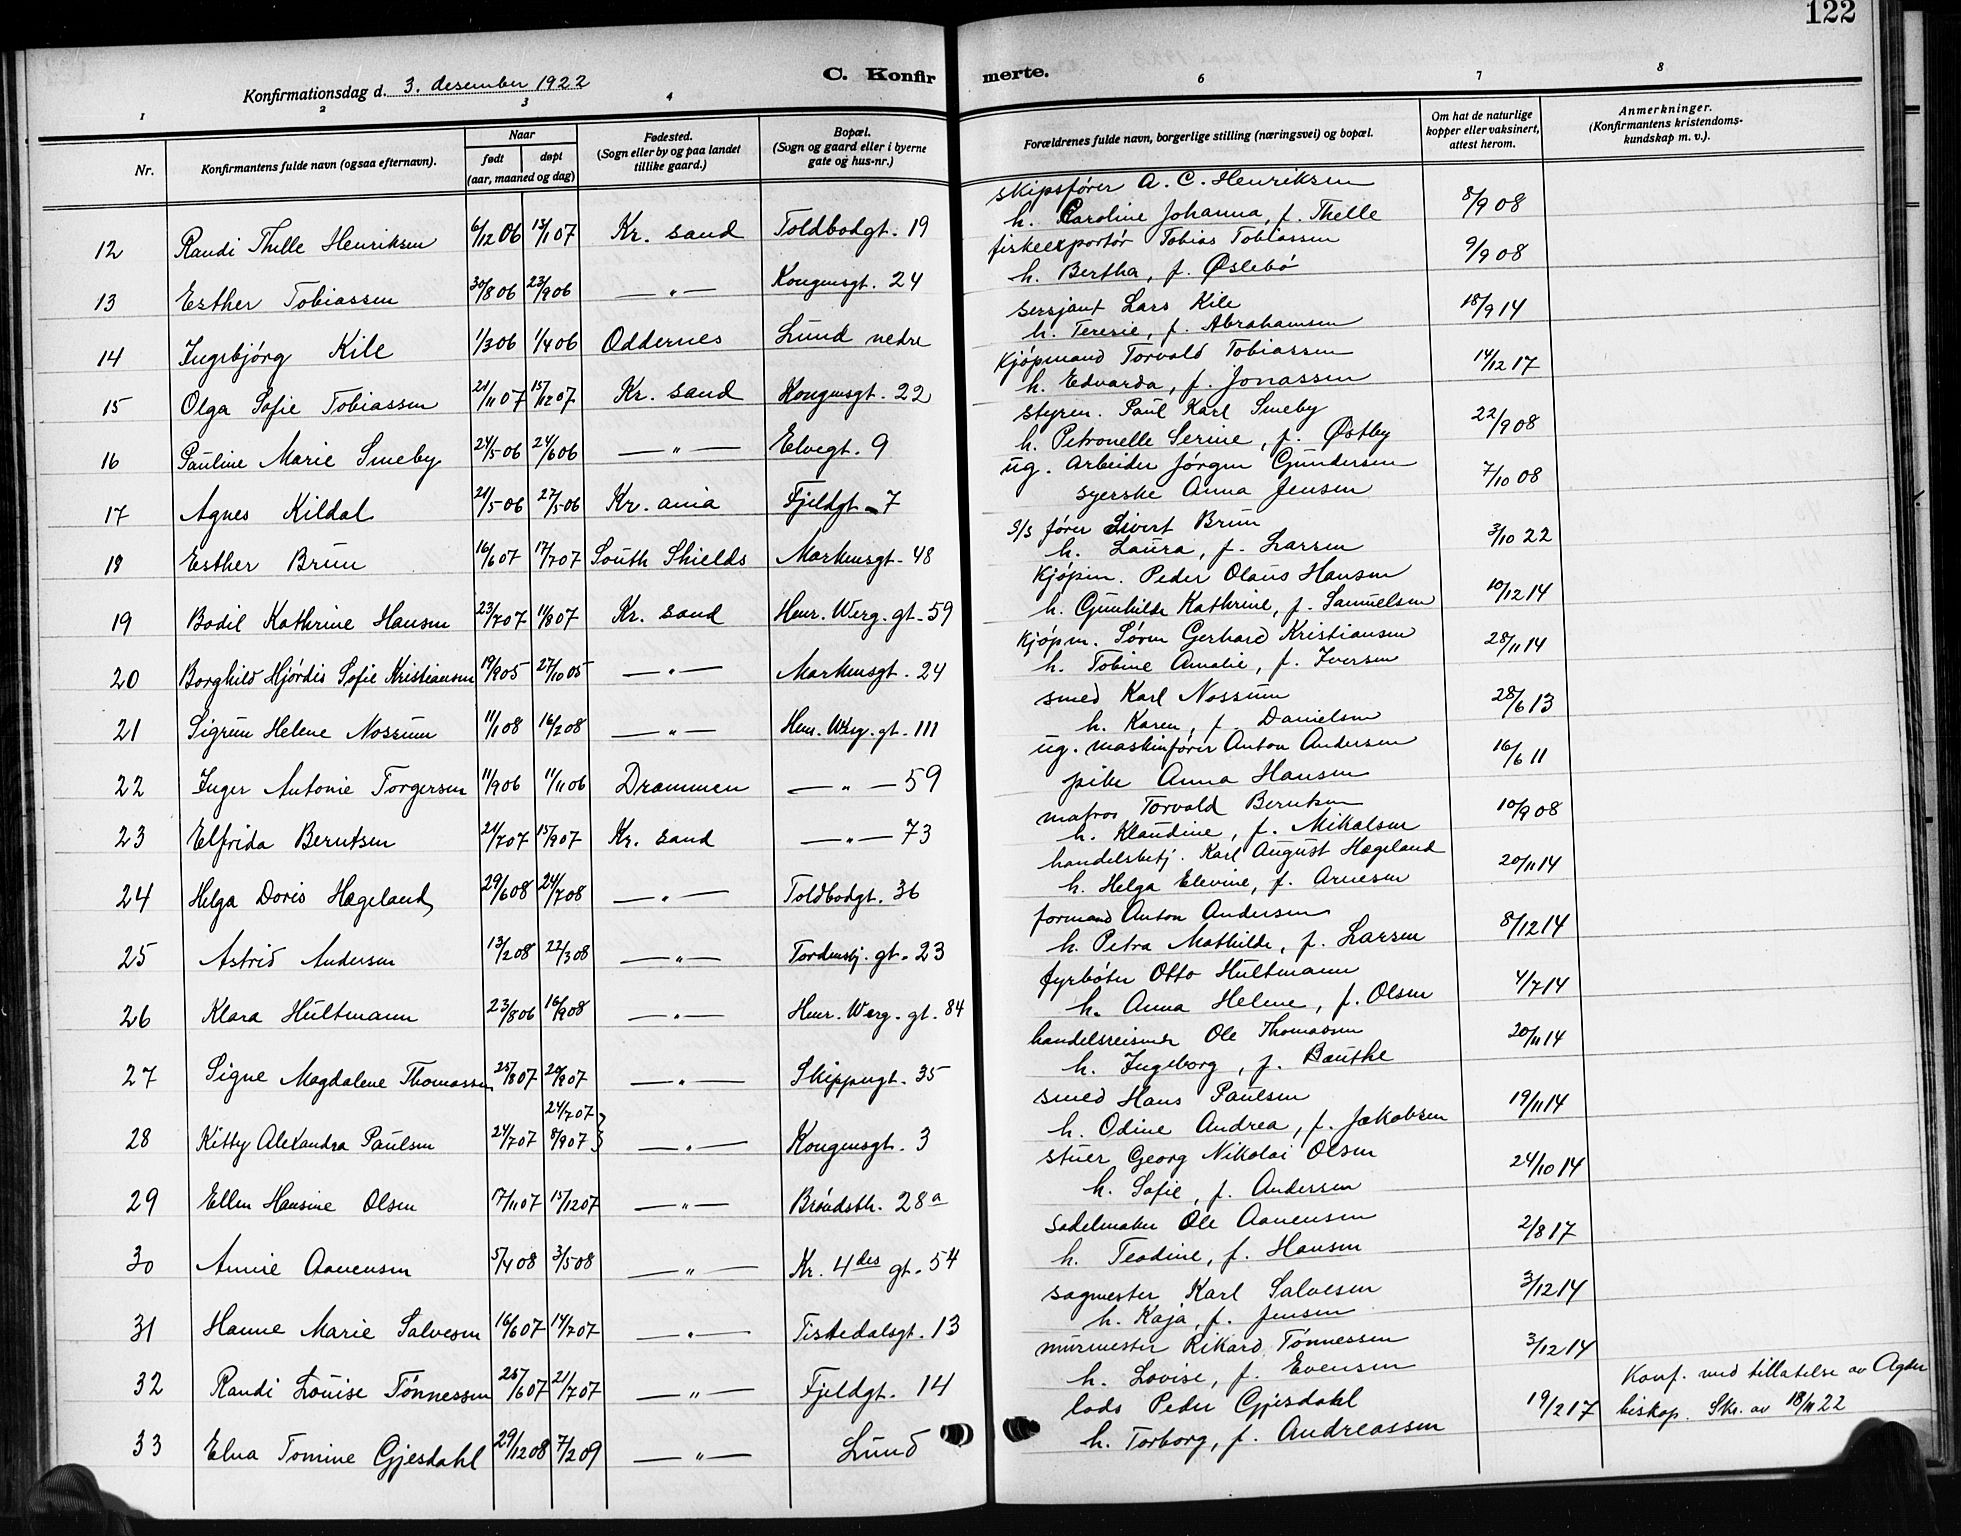 122
C. Konfirmerte.
Konfirmationsdag d. 3. desember 1922
1 2 3 4 6 7 8
Nr.
Konfirmantens fulde navn (ogsaa efternavn).
Naar
født døpt
(aar, maaned og dag)
Fødested.
(Sogn eller by og paa landet
tillike gaard.)
Bopæl.
(Sogn og gaard eller i byerne
gate og hus-nr.)
Forældrenes fulde navn, borgerlige stilling (næringsvei) og bopæl.
Om hat de naturlige
kopper eller vaksinert,
attest herom.
Anmerkninger.
(Konfirmantens kristendoms-
kundskap m. v.).
12 Randi Thelle Henriksen 6/12 06 13/1 07 Kr. sand Toldbodgt. 19
skipsfører A. C. Henriksen
h. Caroline Johanna, f. Thelle 8/9 08
13 Esther Tobiassen 30/8 06 23/9 06 — " — Kongensgt. 24
fiskeexportør Tobias Tobiassen
h. Bertha, f. Øslebø 9/9 08
14 Ingebjørg Kile 1/3 06 1/4 06 Oddernes Lund nedre
sersjant Lars Kile
h. Teresie, f. Abrahamsen 18/9 14
15 Olga Sofie Tobiassen 21/11 07 15/12 07 Kr. sand Kongensgt. 22
kjøpmand Torvald Tobiassen
h. Edvarda, f. Jonassen 14/12 17
16 Pauline Marie Smeby 24/5 06 24/6 06 — " — Elvegt. 9
styrm. Paul Karl Smeby
h. Petronelle Serine, f. Østby 22/9 08
17 Agnes Kildal 21/5 06 27/5 06 Kr. ania Fjeldgt. 7
ug. arbeider Jørgen Gundersen
syerske Anna Jensen 7/10 08
18 Esther Brun 16/6 07 17/7 07 South Shields Markensgt. 48
S/S fører Sivert Brun
h. Laura, f. Larsen 3/10 22
19 Bodil Kathrine Hansen 23/7 07 11/8 07 Kr. sand Henr. Werg. gt. 59
Kjøpm. Peder Olaus Hansen
h. Gunhilde Kathrine, f. Samuelsen 10/12 14
20 Borghild Hjørdis Sofie Kristiansen 19/9 05 27/10 05 — " — Markensgt. 24
Kjøpm. Søren Gerhard Kristiansen
h. Tobine Amalie, f. Iversen 28/11 14
21 Sigrun Helene Nossum 11/1 08 16/2 08 — " — Henr. Werg. gt. 111
smed Karl Nossum
h. Karen, f. Danielsen 28/6 13
22 Inger Antonie Torgersen 11/9 06 11/11 06 Drammen — " — 59
ug. maskinfører Anton Andersen
pike Anna Hansen 16/6 11
23 Elfrida Berntsen 21/7 07 15/9 07 Kr. sand — " — 73
matros Torvald Berntsen
h. Klaudine, f. Mikalsen 10/9 08
24 Helga Doris Hægeland 29/6 08 24/7 08 — " — Toldbodgt. 36
handelsbetj. Karl August Hægeland
h. Helga Elevine, f. Arnesen 20/11 14
25 Astrid Andersen 13/2 08 22/3 08 — " — Tordenskj. gt. 23
formand Anton Andersen
h. Petra Mathilde, f. Larsen 8/12 14
26 Klara Hultmann 23/8 06 16/9 08 — " — Henr. Werg. gt. 84
fyrbøter Otto Hultmann
h. Anna Helene, f. Olsen 4/7 14
27 Signe Magdalene Thomassen 25/8 07 29/9 07 — " — Skippergt. 35
handelsreisende Ole Thomassen
h. Ingeborg, f. Bauthe 20/11 14
28 Kitty Alexandra Paulsen 24/7 07 24/7 07 8/9 07 — " — Kongensgt. 3
smed Hans Paulsen
h. Odine Andrea, f. Jakobsen 19/11 14
29 Ellen Hansine Olsen 17/11 07 15/12 07 — " — Brøndstr. 28 a
stuer Georg Nikolai Olsen
h. Sofie, f. Andersen 24/10 14
30 Annie Aanensen 5/4 08 3/5 08 — " — Kr. 4des gt. 54
sadelmaker Ole Aanensen
h. Teodine, f. Hansen 2/8 17
31 Hanne Marie Salvesen 16/6 07 14/7 07 — " — Tistedalsgt. 13
sagmester Karl Salvesen
h. Kaja, f. Jensen 3/12 14
32 Randi Louise Tønnessen 25/6 07 21/7 07 — " — Fjeldgt. 14
murmester Rikard Tønnessen
h. Lovise, f. Evensen 3/12 14
33 Elna Tomine Gjesdahl 29/12 08 7/2 09 — " — Lund
lods Peder Gjesdahl
h. Torborg, f. Andreassen 19/2 17
Konf. med tillatelse av Agder
biskop. Skr. av 18/11 22